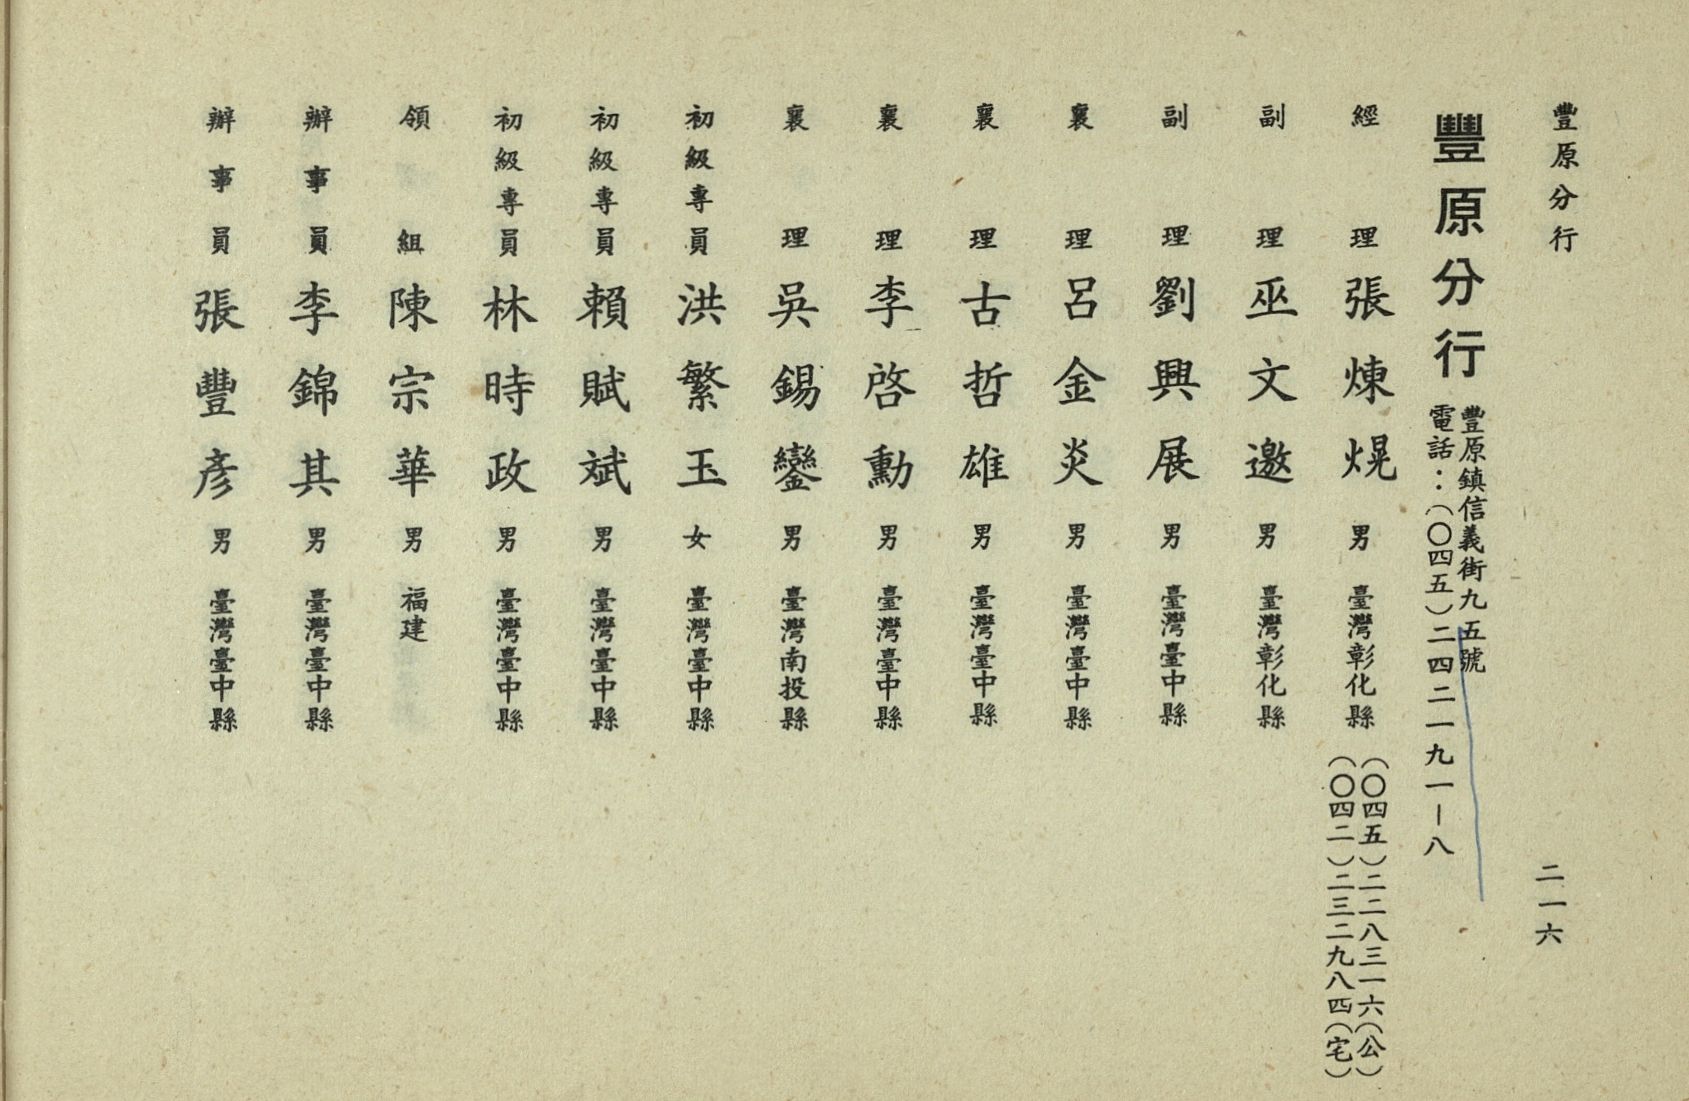 豐原分行
二一六
豐原分行
豐原鎮信義街九五號
電話：(〇四五)二四二一九一－八
經理 張煉熀 男 臺灣彰化縣 (〇四五)二二八三一六(公)
(〇四二)二三二九八四(宅)
副理 巫文邀 男 臺灣彰化縣
副理 劉興展 男 臺灣臺中縣
襄理 呂金炎 男 臺灣臺中縣
襄理 古哲雄 男 臺灣臺中縣
襄理 李啓勳 男 臺灣臺中縣
襄理 吳錫鑾 男 臺灣南投縣
初級專員 洪繁玉 女 臺灣臺中縣
初級專員 賴賦斌 男 臺灣臺中縣
初級專員 林時政 男 臺灣臺中縣
領組 陳宗華 男 福建
辦事員 李錦其 男 臺灣臺中縣
辦事員 張豐彥 男 臺灣臺中縣